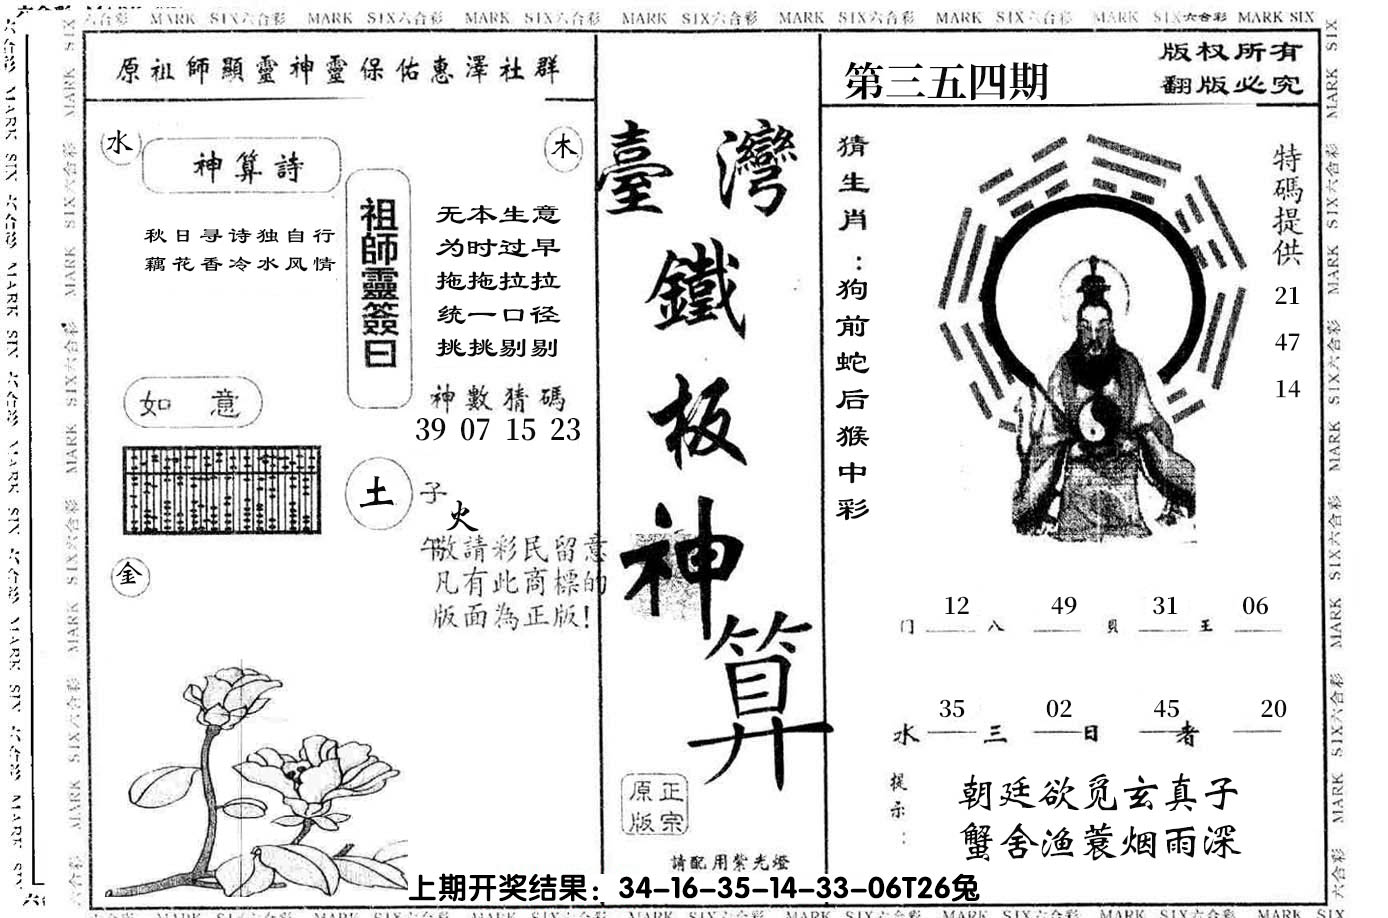 六合彩 MARK SIX六合彩 MARK SIX六合彩 MARK SIX六合彩 MARK SIX六合彩 MARK SIX六合彩 MARK SIX六合彩 MARK SIX六合彩 MARK SIX
原祖師顯靈神靈保佑惠澤社群
水
神算詩
木
秋日寻诗独自行
藕花香冷水风情
祖師靈簽曰
无本生意
为时过早
拖拖拉拉
统一口径
挑挑剔剔
神數猜碼
39 07 15 23
如 意
土
子
火
午
敬請彩民留意
凡有此商標的
版面為正版!
金
臺灣
鐵
板
神
算
正宗
原版
請配用紫光燈
第三五四期
版权所有
翻版必究
猜生肖:狗前蛇后猴中彩
特碼提供
21
47
14
12 49 31 06
门 八 貝 王
35 02 45 20
水 三 日 者
提示:
朝廷欲觅玄真子
蟹舍渔蓑烟雨深
上期开奖结果：34-16-35-14-33-06T26兔